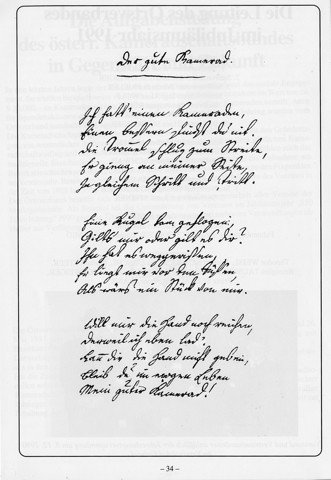 Der gute Kamerad.
Ich hatt' einen Kameraden,
Einen bessern findst du nit.
Die Trommel schlug zum Streite,
Er gieng an meiner Seite,
In gleichem Schritt und Tritt.
Eine Kugel kam geflogen;
Gilts mir oder gilt es dir?
Ihn hat es weggerissen,
Er liegt mir vor den Füßen,
Als wärs ein Stük von mir.
Will mir die Hand noch reichen,
Derweil ich eben lad'.
Kann dir die Hand nicht geben,
Bleib du im ewgen Leben
Mein guter Kamerad!
– 34 –